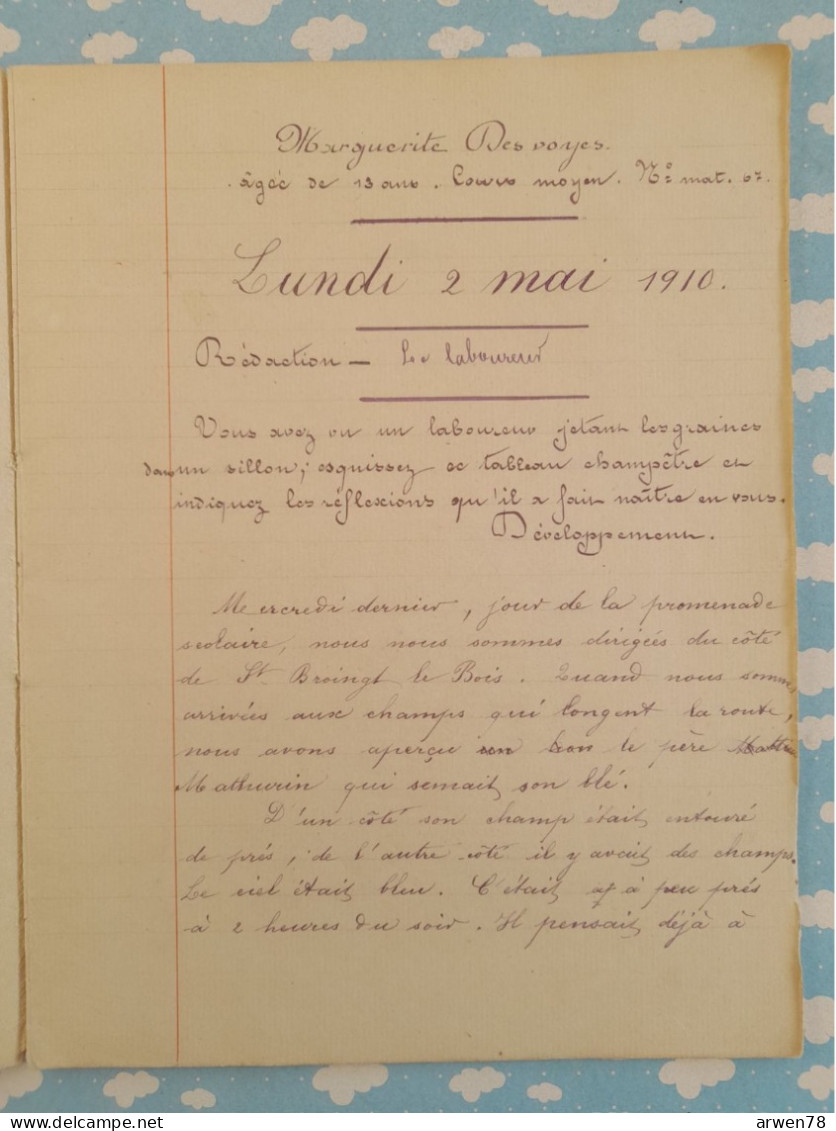 Marguerite Desvoyes.
âgée de 13 ans. Cours moyen. N° mat. 67.
Lundi 2 mai 1910.
Rédaction — Le laboureur
Vous avez vu un laboureur jetant les graines
dans un sillon ; esquissez ce tableau champêtre et
indiquez les réflexions qu'il a fait naître en vous.
Développement.
Mercredi dernier, jour de la promenade
scolaire, nous nous sommes dirigées du côté
de St Broingt le Bois. Quand nous sommes
arrivées aux champs qui longent la route,
nous avons aperçu le père
Mathurin qui semait son blé.
D'un côté son champ était entouré
de prés ; de l'autre côté il y avait des champs.
Le ciel était bleu. C'était à peu près
à 2 heures du soir. Il pensait déjà à
arwen78